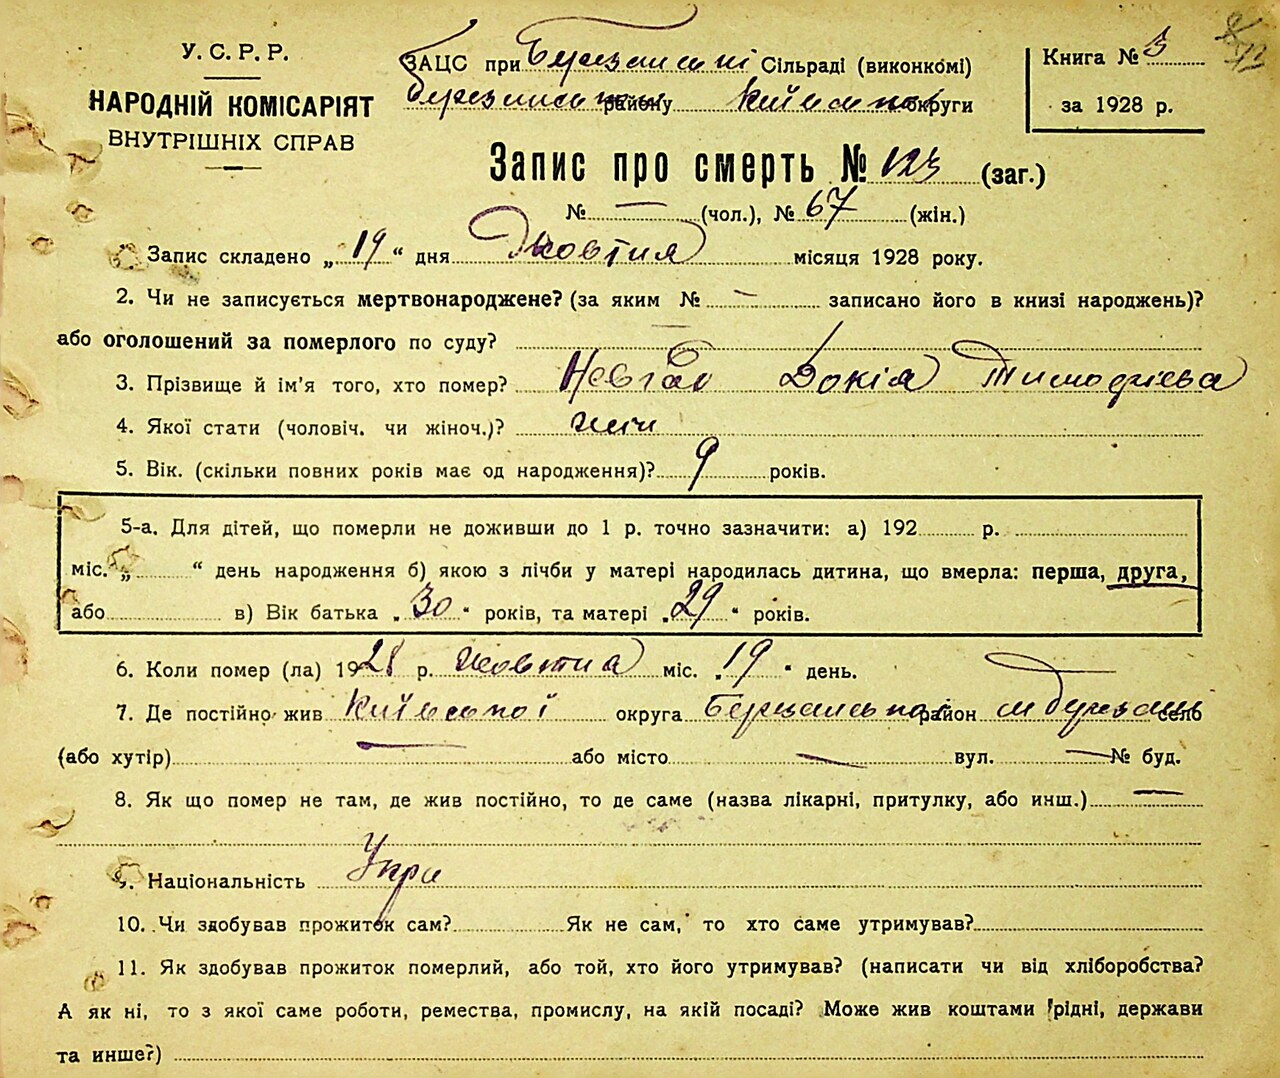 У. С. Р. Р.
НАРОДНІЙ КОМІСАРІЯТ
ВНУТРІШНІХ СПРАВ
ЗАЦС при Березанські Сільраді (виконкомі)
Березанського району Київської округи
Книга № 3
за 1928 р.
Запис про смерть № 123 (заг.)
№ — (чол.), № 67 (жін.)
Запис складено „ 19 “ дня Жовтня місяця 1928 року.
2. Чи не записується мертвонароджене? (за яким № — записано його в книзі народжень)?
або оголошений за померлого по суду? —
3. Прізвище й ім'я того, хто помер? Докія Тимофієва
4. Якої статі (чоловіч. чи жіноч.)? жін
5. Вік. (скільки повних років має од народження)? 9 років.
5-а. Для дітей, що померли не доживши до 1 р. точно зазначити: а) 192 р.
міс. „ “ день народження б) якою з лічби у матері народилась дитина, що вмерла: перша, друга,
або в) Вік батька „ 30 “ років, та матері „ 29 “ років.
6. Коли помер (ла) 1928 р. Жовтня міс. „ 19 “ день.
7. Де постійно жив Київської округа Березанської район м Березань село
(або хутір) — або місто — вул. — № буд.
8. Як що помер не там, де жив постійно, то де саме (назва лікарні, притулку, або инш.) —
9. Національність Укра
10. Чи здобував прожиток сам? Як не сам, то хто саме утримував?
11. Як здобував прожиток померлий, або той, хто його утримував? (написати чи від хліборобства?
А як ні, то з якої саме роботи, ремества, промислу, на якій посаді? Може жив коштами рідні, держави
та инше?)